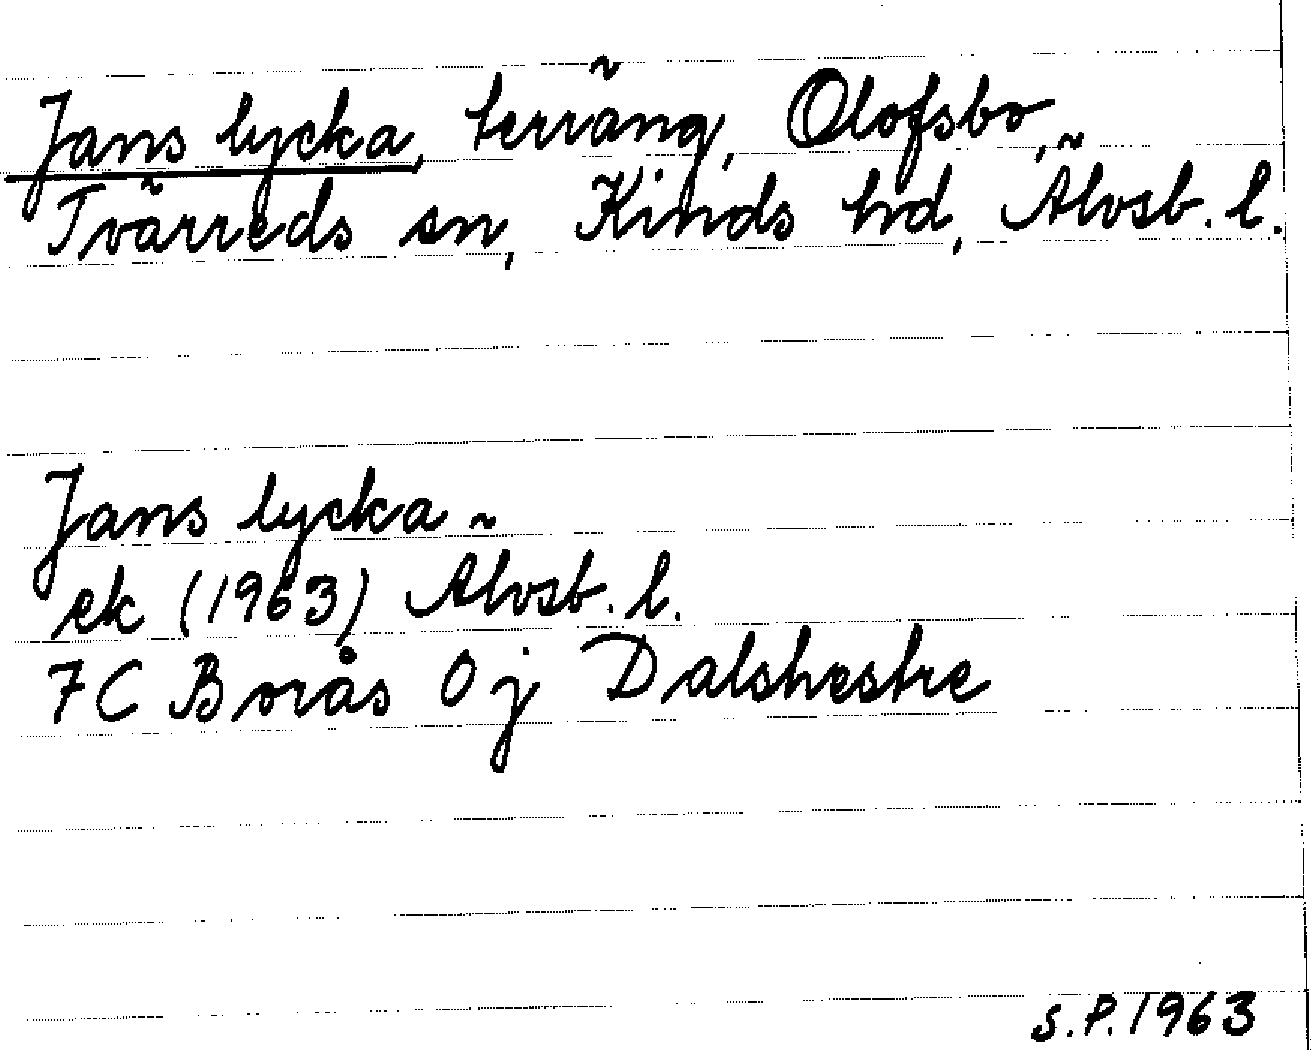 Jans lycka, terräng, Olofsbo,
Tvärreds sn, Kinds hd, Älvsb. l.
Jans lycka
ek (1963) Älvsb. l.
7C Borås 0j Dalshestre
S.P. 1963